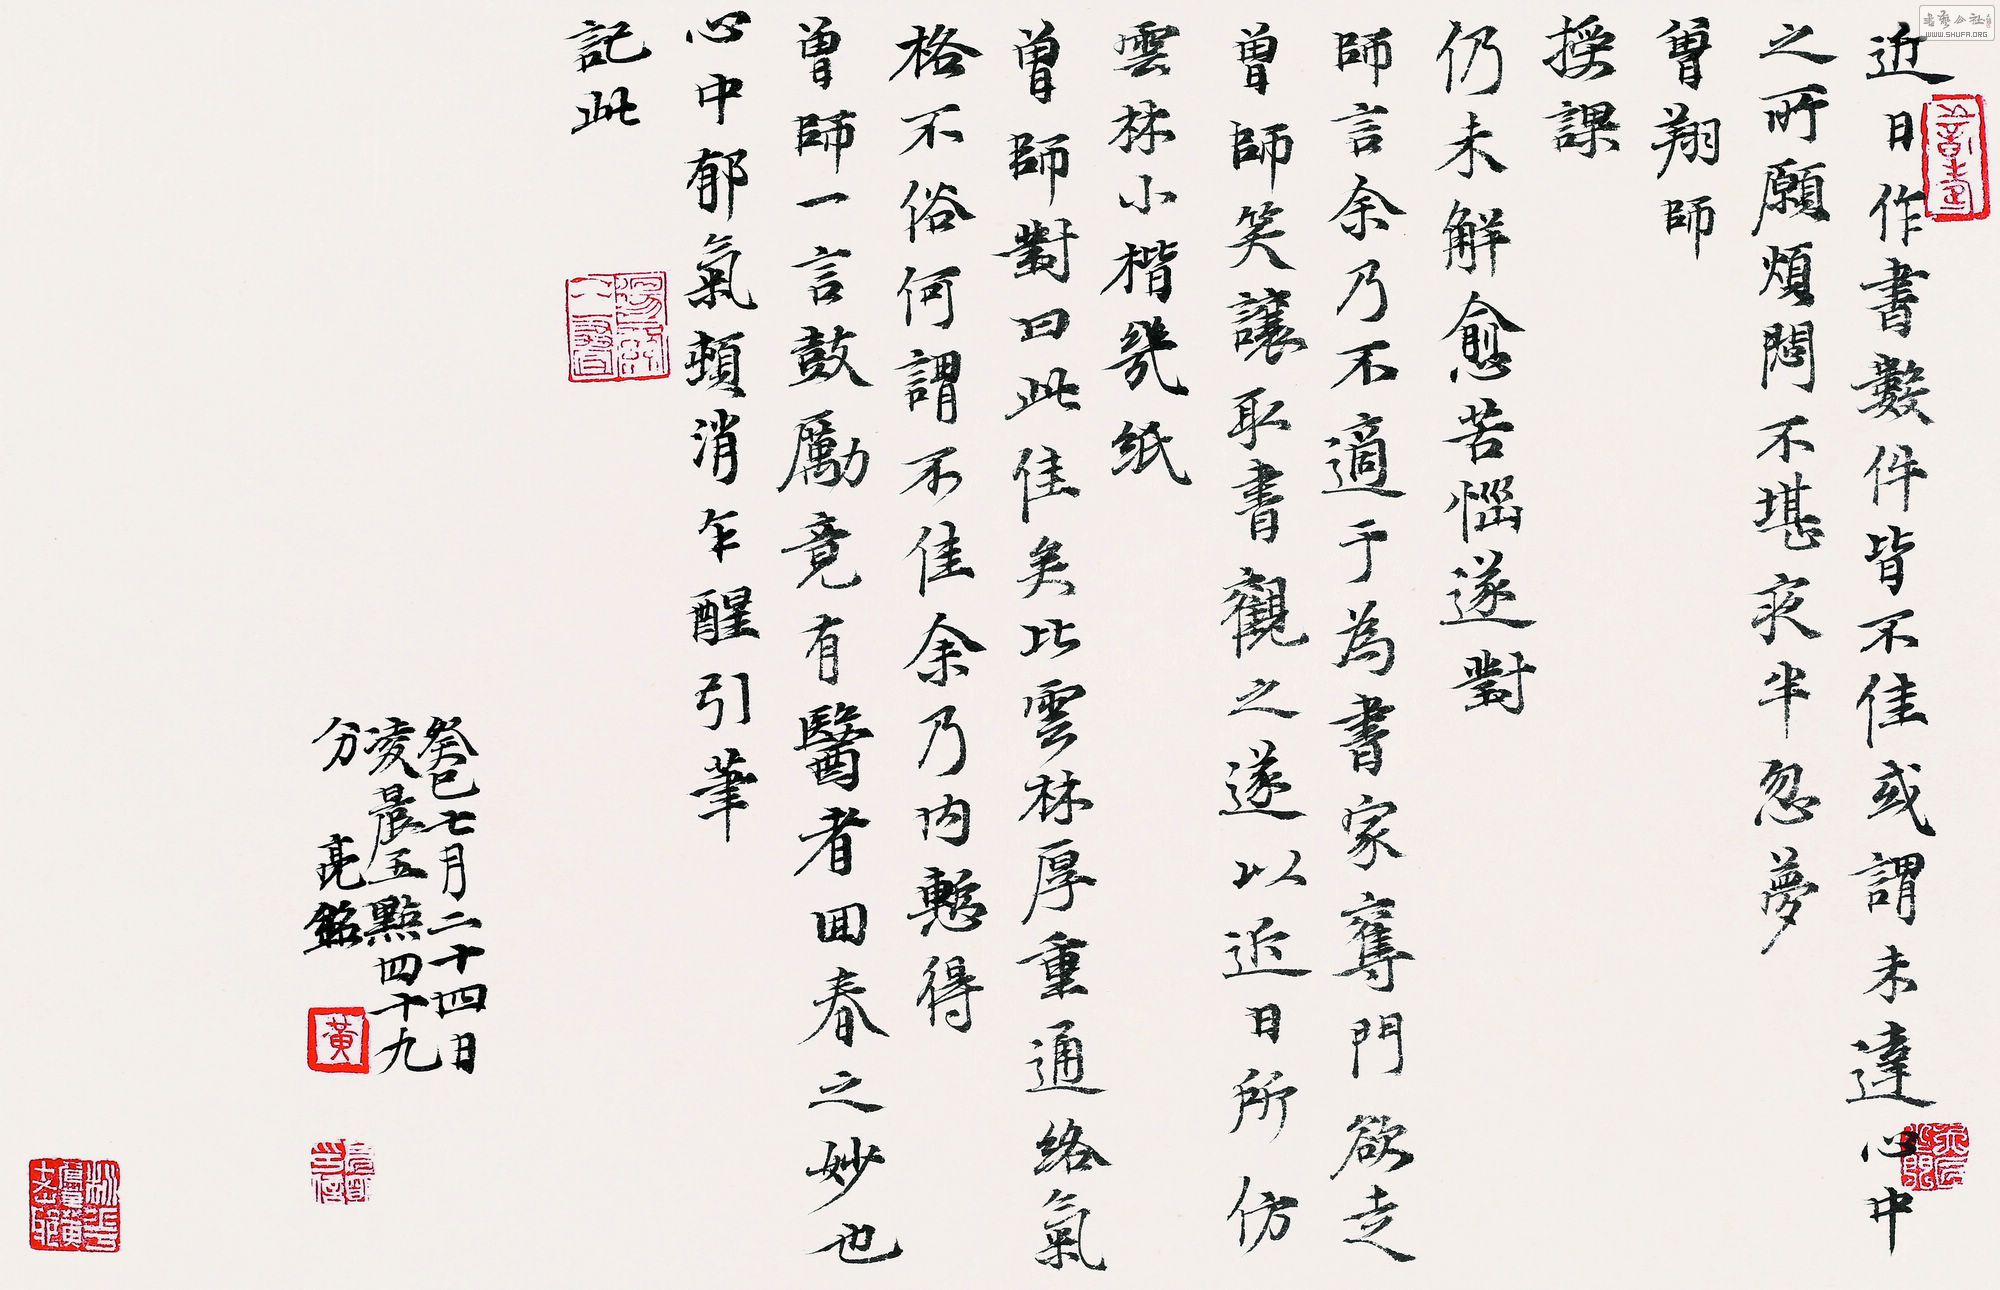 近日作書數件皆不佳或謂未達心中
之所願煩悶不堪夜半忽夢
曾翔師
授課
仍未解愈苦惱遂對
師言余乃不適于為書家奪門欲走
曾師笑讓取書觀之遂以近日所仿
雲林小楷幾紙
曾師對曰此佳矣比雲林厚重通絡氣
格不俗何謂不佳余乃內慙得
曾師一言鼓勵竟有醫者回春之妙也
心中郁氣頓消乍醒引筆
記此
癸巳七月二十四日
凌晨五點四十九
分 亮銘
黃
书艺公社
WWW.SHUFA.ORG